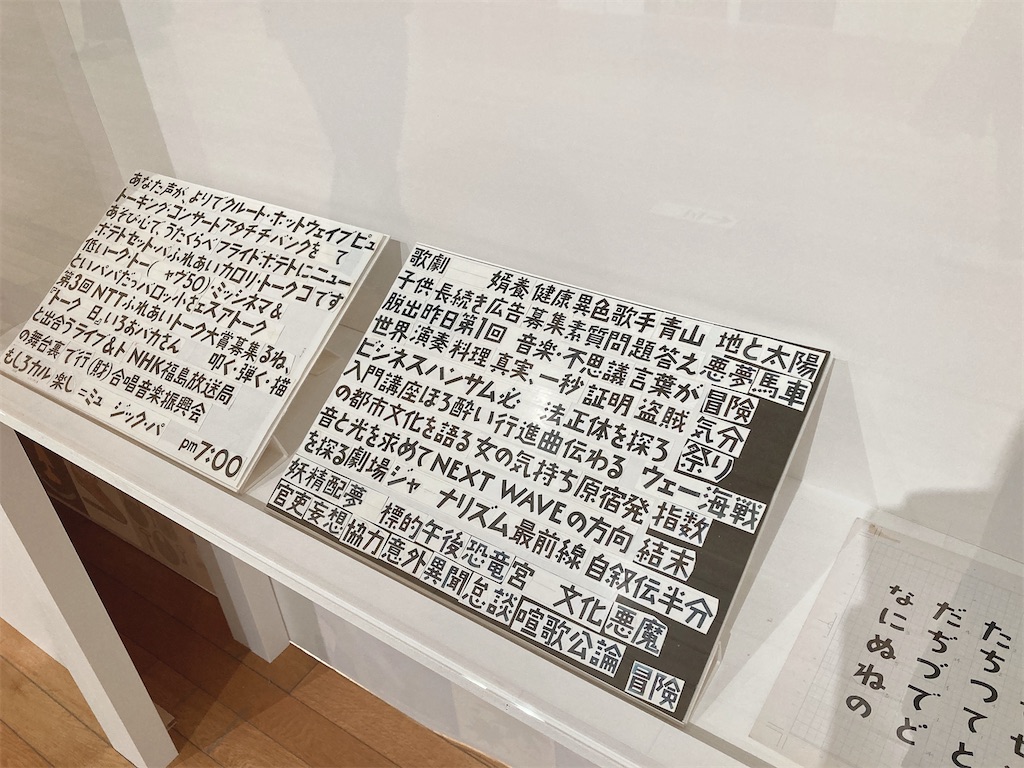 あなた声が、よりてクルート・ホットウェイブピュ
トーキング・コンサートアタチチバンクを て
あそび・じて、うたくらべフライト・ポラトにニュー
ポテトセット・バふれあいカロリ、トークコです
低いークトー( ャグ50)・ミッシスマ&
といババだっバロッ小さェスアトーク
第3回NTTふれあいトーク大賞募集るね、
トーク 日。いろおバカさん 叩く・弾く・描
と出合うライブ&ト NHK福島放送局
の舞台裏で行(財)合唱音楽振興会
もしろカル楽し ニミュ ジック・パ
pm7:00
歌劇 婿養健康異色歌手青山 地と太陽
子供長続き広告募集素質問題答え悪夢馬車
脱出昨日第1回 音楽・不思議言葉か冒険
世界演奏料理真実、一秒証明盗賊 気分
ビジネスハンサム必 法正体を探ろ 祭り
入門講座ほろ酔い行進曲伝わる ウェー海戦
の都市文化を語る女の気持ち原宿発 指数
音と光を求めてNEXT WAVEの方向 結末
を探る劇場ジャ ナリズム最前線自叙伝半分
妖精配夢 標的午後恐竜宮 文化悪魔
官吏妄想協力意外異聞怠談喧歌公論 冒険
たちつてと
だぢづでど
なにぬねの